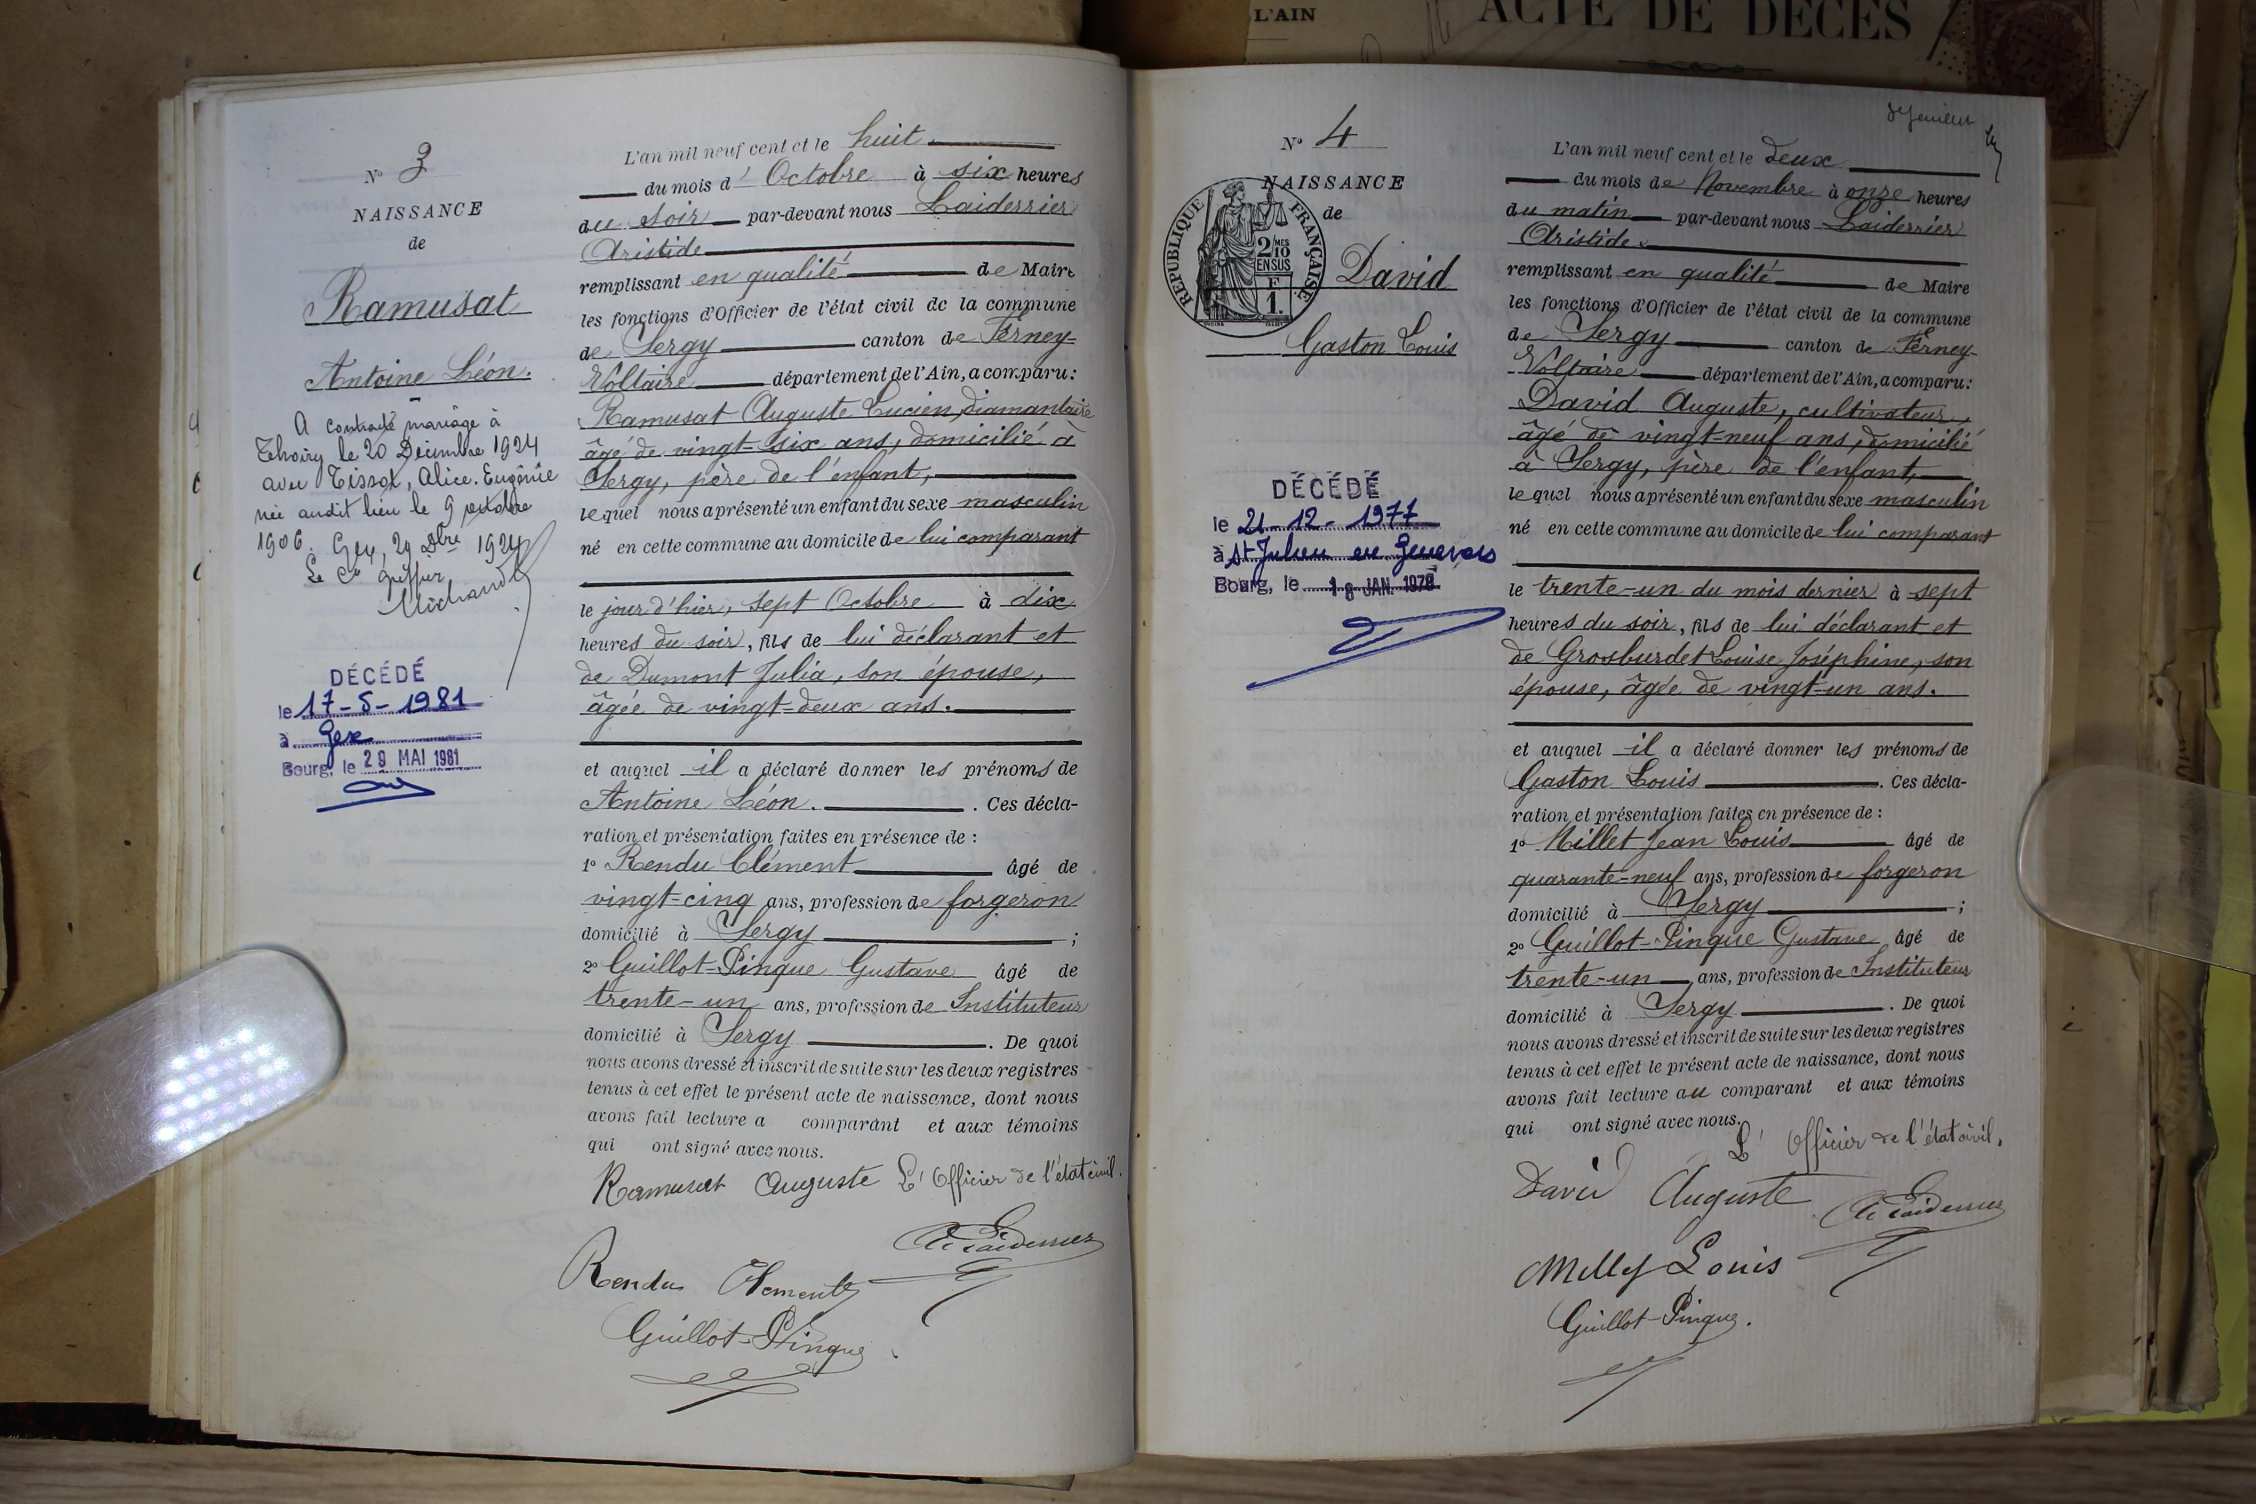 L'AIN
ACTE DE DÉCÈS
N° 3
NAISSANCE
de
Ramusat
Antoine Léon.
A contracté mariage à
Thoiry le 20 Décembre 1924
avec Tissot, Alice Eugénie
née audit lieu le 9 octobre
1906. Gex, 29 Xbre 1924
Le Cs greffier
Michaud
DÉCÉDÉ
le 17-5-1981
à Gex
Bourg, le 29 MAI 1981
L'an mil neuf cent et le huit
du mois d'Octobre à six heures
du soir par-devant nous Laiderrier
Aristide
remplissant en qualité de Maire
les fonctions d'Officier de l'état civil de la commune
de Sergy canton de Ferney-
Voltaire département de l'Ain, a comparu :
Ramusat Auguste Lucien, diamantaire
âgé de vingt-six ans, domicilié à
Sergy, père de l'enfant,
lequel nous a présenté un enfant du sexe masculin
né en cette commune au domicile de lui comparant
le jour d'hier, sept Octobre à dix
heures du soir, fils de lui déclarant et
de Dumont Julia, son épouse,
âgée de vingt-deux ans.
et auquel il a déclaré donner les prénoms de
Antoine Léon. . Ces décla-
ration et présentation faites en présence de :
1° Rendu Clément âgé de
vingt-cinq ans, profession de forgeron
domicilié à Sergy ;
2° Guillot-Pingue Gustave âgé de
trente-un ans, profession de Instituteur
domicilié à Sergy . De quoi
nous avons dressé et inscrit de suite sur les deux registres
tenus à cet effet le présent acte de naissance, dont nous
avons fait lecture a comparant et aux témoins
qui ont signé avec nous.
Ramusat Auguste L'Officier de l'état civil.
A. Laiderrier
Rendu Clement
Guillot-Pingue
N° 4
NAISSANCE
de
RÉPUBLIQUE FRANÇAISE
2/10 MES
EN SUS
F
1.
David
Gaston Louis
DÉCÉDÉ
le 21-12-1977
à St Julien en Genevois
Bourg, le 18 JAN. 1978
L'an mil neuf cent et le deux
du mois de Novembre à onze heures
du matin par-devant nous Laiderrier
Aristide
remplissant en qualité de Maire
les fonctions d'Officier de l'état civil de la commune
de Sergy canton de Ferney-
Voltaire département de l'Ain, a comparu :
David Auguste, cultivateur,
âgé de vingt-neuf ans, domicilié
à Sergy, père de l'enfant,
lequel nous a présenté un enfant du sexe masculin
né en cette commune au domicile de lui comparant
le trente-un du mois dernier à sept
heures du soir, fils de lui déclarant et
de Grosburdet Louise Joséphine, son
épouse, âgée de vingt-un ans.
et auquel il a déclaré donner les prénoms de
Gaston Louis . Ces décla-
ration et présentation faites en présence de :
1° Millet Jean Louis âgé de
quarante-neuf ans, profession de forgeron
domicilié à Sergy ;
2° Guillot-Pingue Gustave âgé de
trente-un ans, profession de Instituteur
domicilié à Sergy . De quoi
nous avons dressé et inscrit de suite sur les deux registres
tenus à cet effet le présent acte de naissance, dont nous
avons fait lecture au comparant et aux témoins
qui ont signé avec nous.
L'Officier de l'état civil,
David Auguste A. Laiderrier
Millet Louis
Guillot-Pingue.